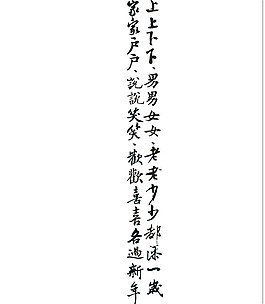 上上下下、男男女女、老老少少都添一歲
家家戶戶、說說笑笑、歡歡喜喜各過新年